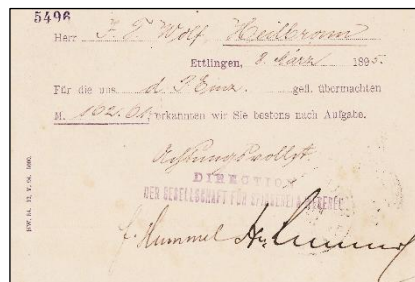 5496
Herr F. C. Wolf, Heilbronn
Ettlingen, 8. März 1895.
Für die uns d. gefl. übermachten
M. 102.01 erkannen wir Sie bestens nach Aufgabe.
Achtungsvollst.
DIRECTION
DER GESELLSCHAFT FÜR SPINNEREI & WEBEREI
Hummel